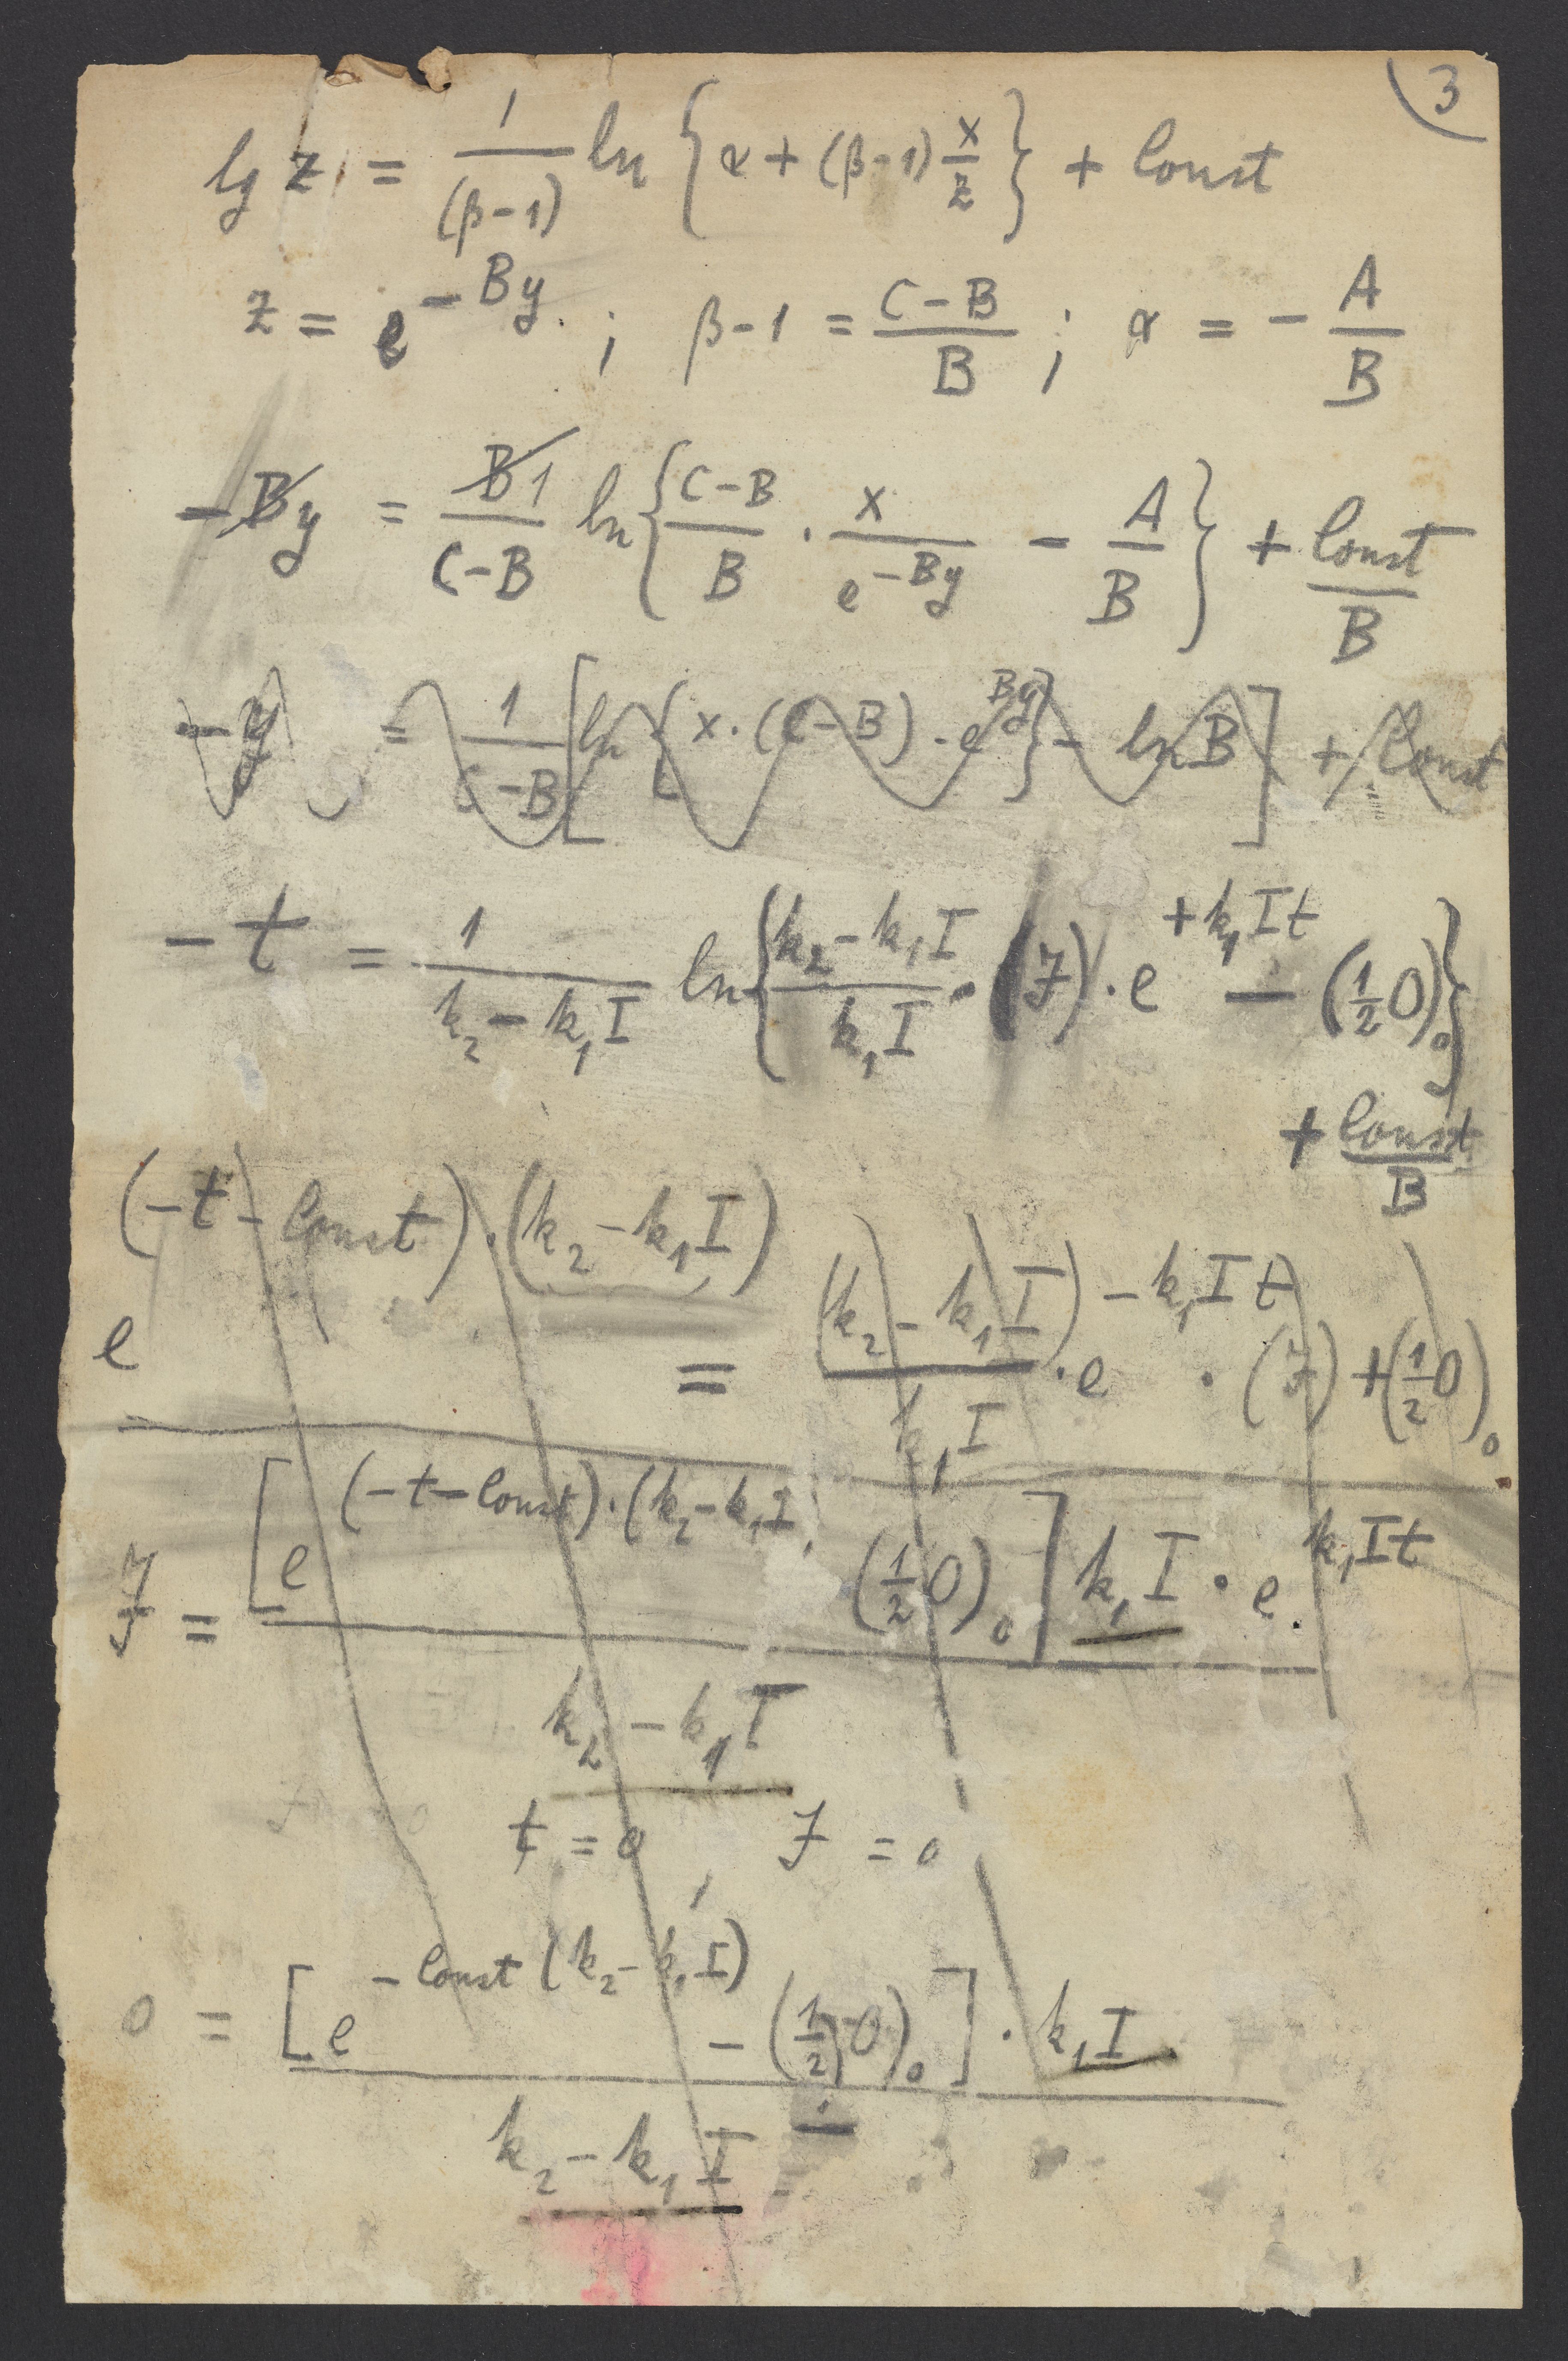 3
lg z = 1/(β-1) ln {α + (β-1) x/z} + Const
z = e^{-By} ; β-1 = (C-B)/B ; α = - A/B
-By = B1/(C-B) ln {(C-B)/B · x/e^{-By} - A/B} + Const/B
-y = 1/(C-B) [ln {x·(C-B)·e^{By}} - ln B] + Const
-t = 1/(k₂-k₁I) ln {(k₂-k₁I)/(k₁I) · (J)·e^{+k₁It} - (1/2 O)₀}
+ Const/B
e^{(-t-Const)·(k₂-k₁I)} = (k₂-k₁I)/(k₁I) · e^{-k₁It} · (J) + (1/2 O)₀
J = [e^{(-t-Const)·(k₂-k₁I} (1/2 O)₀] k₁I · e^{k₁It} / (k₂-k₁I)
t = 0, J = 0
0 = [e^{-Const (k₂-k₁I)} - (1/2 O)₀] · k₁I / (k₂-k₁I)